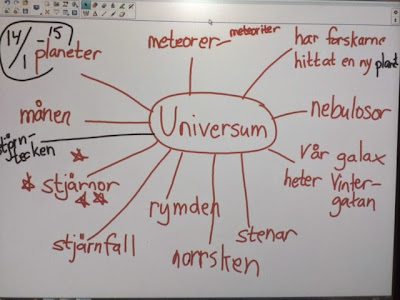 14/1 - 15
planeter
meteorer - meteoriter
har forskarne
hittat en ny plant
månen
Universum
nebulosor
stjärn-
tecken
Vår galax
heter Vinter-
gatan
stjärnor
rymden
stjärnfall
norrsken
stenar